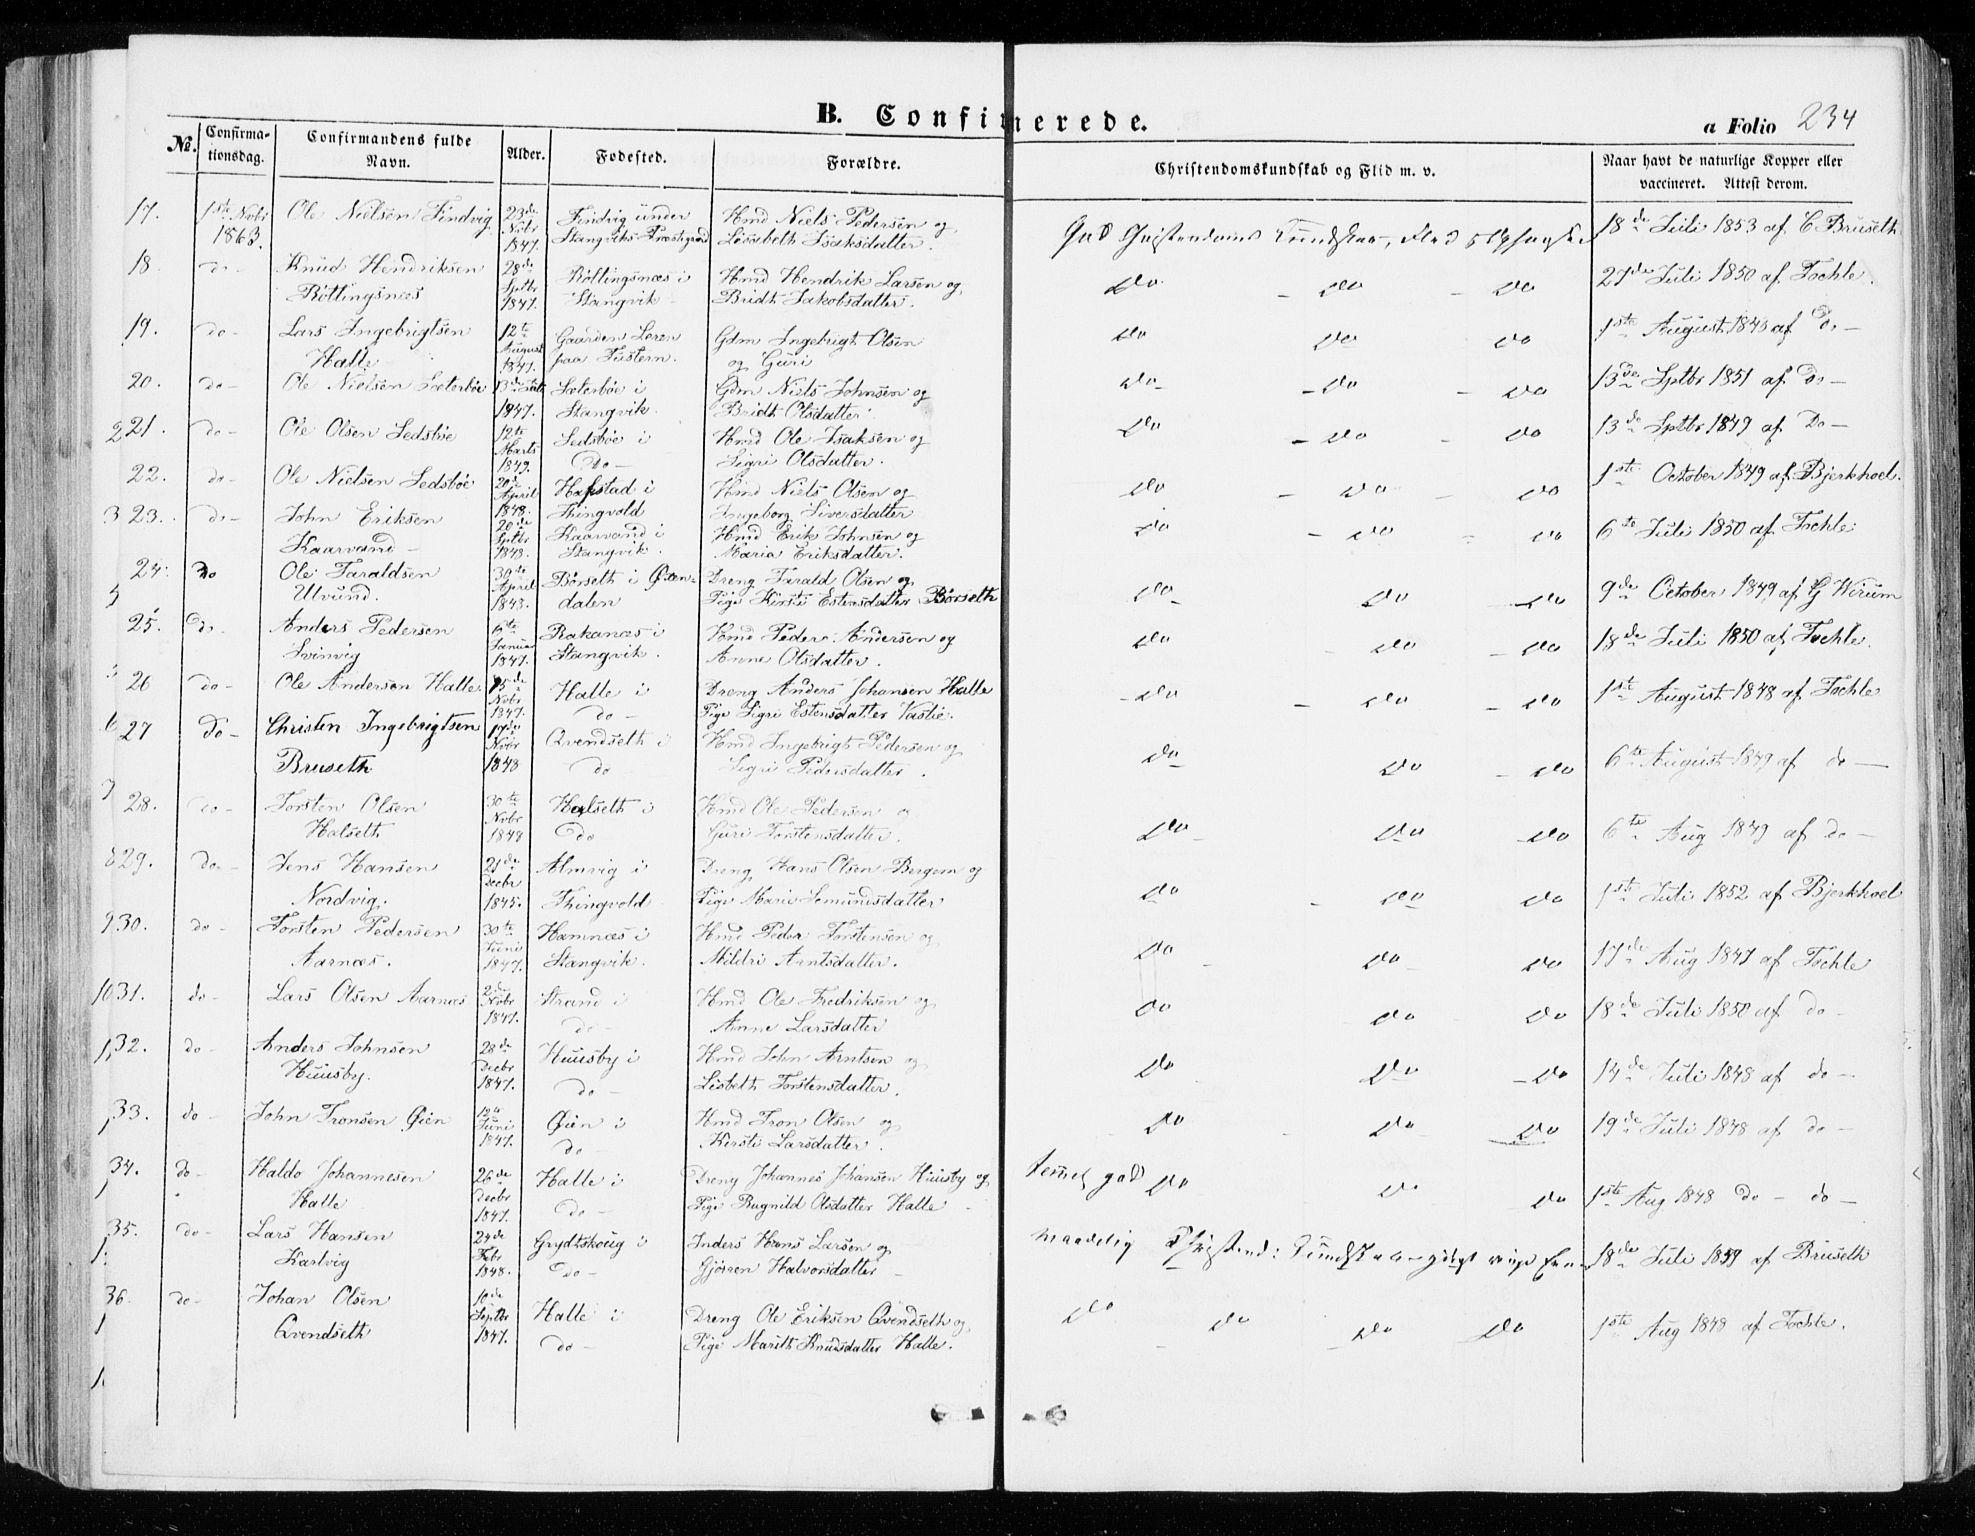 B. Confirmerede.
a Folio 234
No. Confirma-tionsdag. Confirmandens fulde Navn. Alder. Fødested. Forældre. Christendomskundskab og Flid m. v. Naar havt de naturlige Kopper eller vaccineret. Attest derom.
17. 1ste Novbr 1863. Ole Nielsen Findvig 23de Novbr 1847. Findvig under Stangviks Præstegjeld Hmd Niels Pedersen og Lisabeth Isaksdatter. God Christendoms Kundskab, Flid 18de Juli 1853 af C Bruseth
18 do - Knud Hendriksen Røttingsnæs 28de Septbr 1847. Røttingsnæs i Stangvik Hmd Hendrik Larsen og Bridt Jakobsdatter. Do - Do - Do 27de Juli 1850 af Tochle.
19. do - Lars Ingebrigtsen Halle 12te August 1847. Gaarden Leren paa Tustern. Gdm Ingebrigt Olsen og Guri Do Do Do 1ste August af Do -
20. do - Ole Nielsen Sæterbøe 13de 1847. Sæterbøe i Stangvik. Gdm Niels Johnsen og Bridt Olsdatter. Do - Do - Do 13de Septbr 1851 af Do -
21. do - Ole Olsen Sedsbøe 12te Marts 1849. Sedsbøe i Do - Hmd Ole Isaksen og Sigri Olsdatter. Do - Do - Do 13de Septbr 1849 af Do -
22. do - Ole Nielsen Sedsbøe 20de April 1848. Hafstad i Thingvold Hmd Niels Olsen og Ingeborg Siversdatter Do - Do - Do 1ste October 1849 af Bjerkhoel.
23. do - John Eriksen Kaarvand - 20de Septbr 1848. Kaarvand i Stangvik. Hmd Erik Johnsen og Maria Eriksdatter. Do - Do - Do 6te Juli 1850 af Tochle
24. Do Ole Taraldsen Ulvund. 30te April 1843. Børseth i Øxendalen Dreng Tarald Olsen og Pige Kirsti Estensdatter Børseth Do - Do - Do 9de October 1849 af G Wirum
25. Do - Anders Pedersen Svinvig 6te Januar 1847. Rakanæs i Stangvik. Hmd Peder Andersen og Anne Olsdatter. Do - Do - Do 18de Juli 1850 af Tochle.
26 do - Ole Andersen Halle 15de Novbr 1847. Halle i do - Dreng Anders Johansen Halle Pige Sigri Estensdatter Vasbø. Do - Do - Do 1ste August 1848 af Tochle
27 Do - Christen Ingebrigtsen Bruseth 17de Novbr 1848 Qvendseth i do Hmd Ingebrigt Pedersen og Sigri Pedersdatter. Do Do - Do 6te August 1849 af do -
28. do - Torsten Olsen Halseth 30te Novbr 1848 Halseth i Do Hmd Ole Pedersen og Guri Torstensdatter. Do Do - Do 6te Aug 1849 af do -
29. do - Jens Hansen Nordvig. 21de Decbr 1845. Almvig i Thingvold Dreng Hans Olsen Bergem og Pige Marie Semundsdatter Do - Do Do 1ste Juli 1852 af Bjerkhoel
30. do - Torsten Pedersen Aarnæs. 30te Juni 1847. Hamnæs i Stangvik. Hmd Peder Torstensen og Mildri Arntsdatter. Do - Do - Do 17de Aug 1847 af Tochle
31. do - Lars Olsen Aarnæs 2de Novbr 1847. Strand i do - Hmd Ole Fredriksen og Anne Larsdatter Do Do - Do 18de Juli 1850 af do -
32. do - Anders Johnsen Huusby. 28de Decbr 1847. Huusby i do - Hmd John Arntsen og Lisbeth Torstensdatter. Do Do - Do 14de Juli 1848 af do -
33. do - John Tronsen Øien Juni 1847. Øien i do - Hmd Tron Olsen og Kirsti Larsdatter. Do Do - Do 19de Juli 1848 af do -
34. do - Haldo Johannesen Halle 26de Decbr 1847. Halle i do - Dreng Johannes Johansen Huusby og Pige Rugnild Olsdatter Halle - temel. god Do Do Do 1ste Aug 1848 do - do -
35. do - Lars Hansen Karlvig 24de Febr 1848. Grydtskoug i do - Inders Hans Larsen og Gjørren Halvorsdatter - maadelig Christend: Kundskab 18de Juli 1859 af Bruseth
36. do - Johan Olsen Qvendseth 10de Septbr 1847. Halle i do - Dreng Ole Eriksen Qvendseth og Pige Marith Knudsdatter Halle. Do - Do - Do Do 1ste Aug 1848 af Tochle.